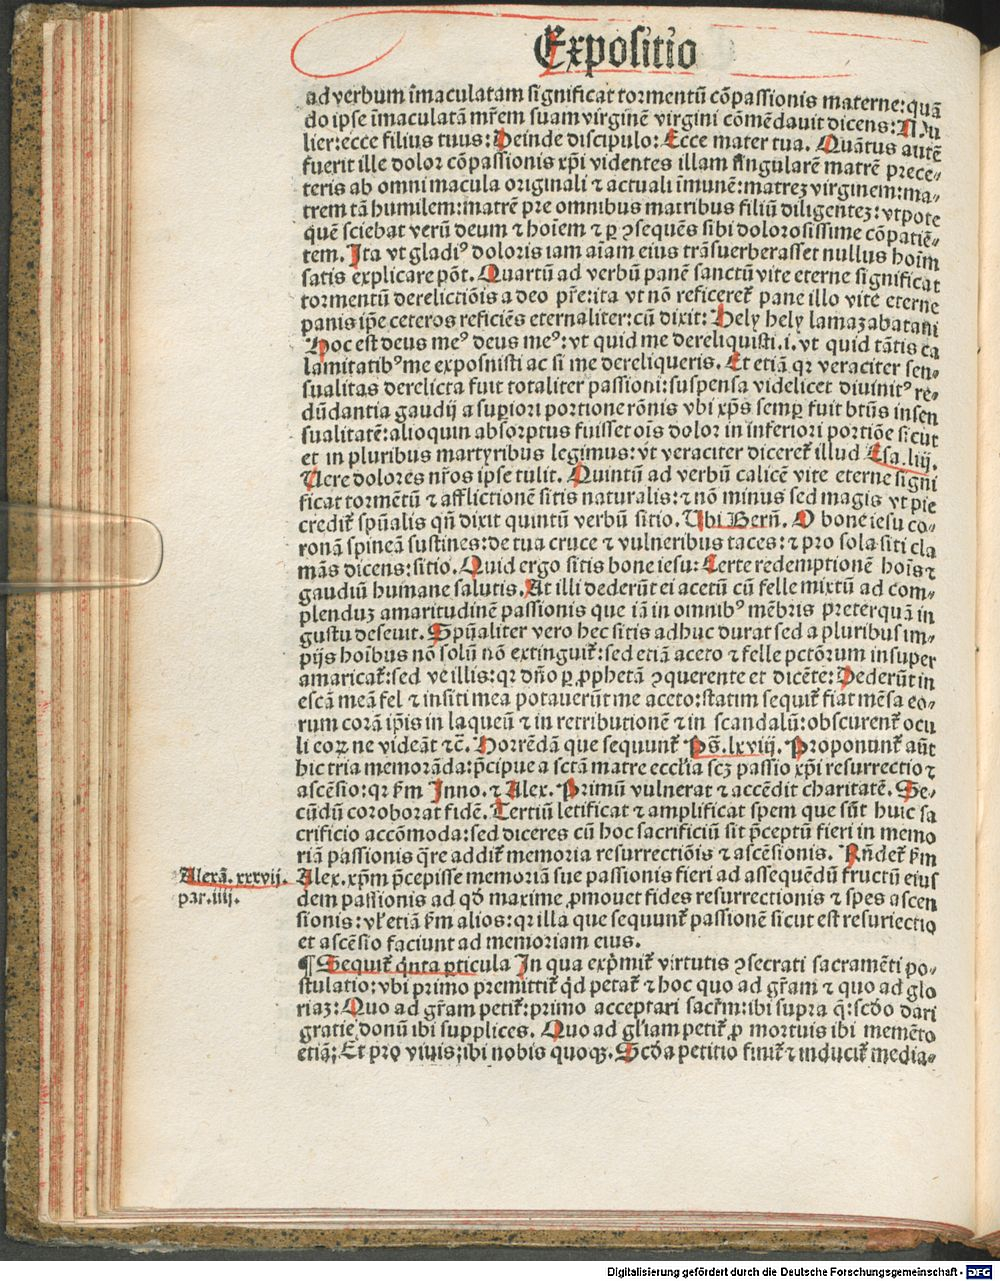 Expositio
ad verbum īmaculatam significat tormentū cōpassionis materne: quā
do ipse īmaculatā mr̄em suam virginē virgini cōmēdauit dicens: Mu
lier: ecce filius tuus: Deinde discipulo: Ecce mater tua. Quātus autē
fuerit ille dolor cōpassionis xp̄i videntes illam singularē matrē prece⸗
teris ab omni macula originali ⁊ actuali īmunē: matreꝫ virginem: ma⸗
trem tā humilem: matrē pre omnibus matribus filiū diligenteꝫ: vtpote
quē sciebat verū deum ⁊ hoīem ⁊ ꝑ ↄsequēs sibi dolorosissime cōpatiē⸗
tem. Ita vt gladiꝰ doloris iam aīam eius trāsuerberasset nullus hoīm
satis explicare pōt. Quartū ad verbū panē sanctū vite eterne significat
tormentū derelictiōis a deo pr̄e: ita vt nō reficeret᷑ pane illo vite eterne
panis ip̄e ceteros reficiēs eternaliter: cū dixit: Hely hely lamazabatani
Hoc est deus meꝰ deus meꝰ: vt quid me dereliquisti .i. vt quid tātis ca
lamitatibꝰ me exposuisti ac si me dereliqueris. Et etiā qꝛ veraciter sen⸗
sualitas derelicta fuit totaliter passioni: suspensa videlicet diuinitꝰ re⸗
dūdantia gaudij a suꝑiori portione rōnis vbi xp̄s semꝑ fuit btūs in sen
sualitatē: alioquin absorptus fuisset oīs dolor in inferiori portiōe sicut
et in pluribus martyribus legimus: vt veraciter diceret᷑ illud Esa. liij.
Uere dolores nr̄os ipse tulit. Quintū ad verbū calicē vite eterne signi
ficat tormētū ⁊ afflictionē sitis naturalis: ⁊ nō minus sed magis vt pie
credit᷑ sp̄ualis qn̄ dixit quintū verbū sitio. Ubi Bern̄. O bone iesu co⸗
ronā spineā sustines: de tua cruce ⁊ vulneribus taces: ⁊ pro sola siti cla
mās dicens: sitio. Quid ergo sitis bone iesu: Certe redemptionē hoīs ⁊
gaudiū humane salutis. At illi dederūt ei acetū cū felle mixtū ad com⸗
plenduꝫ amaritudinē passionis que iā in omnibꝰ mēbris preterquā in
gustu deseuit. Sp̄ualiter vero hec sitis adhuc durat sed a pluribus im⸗
pijs hoībus nō solū nō extinguit᷑: sed etiā aceto ⁊ felle pctōrum insuper
amaricat᷑: sed ve illis: qꝛ dn̄o ꝑ ꝓphetā ↄquerente et dicēte: Dederūt in
escā meā fel ⁊ in siti mea potauerūt me aceto: statim sequit᷑ fiat mēsa eo⸗
rum corā ip̄is in laqueū ⁊ in retributionē ⁊ in scandalū: obscurent᷑ ocu
li coꝝ ne videāt ⁊c̄. Horrēdā que sequunt᷑ Ps̄. lxviij. Proponunt᷑ aūt
hic tria memorāda: p̄cipue a sctā matre eccl̄ia scꝫ passio xp̄i resurrectio ⁊
ascēsio: qꝛ ẜm Inno. ⁊ Alex. Primū vulnerat ⁊ accēdit charitatē. Se⸗
cūdū coroborat fidē. Tertiū letificat ⁊ amplificat spem que sūt huic sa
crificio accōmoda: sed diceres cū hoc sacrificiū sit p̄ceptū fieri in memo
riā passionis q̄re addit᷑ memoria resurrectiōis ⁊ ascēsionis. Rn̄det᷑ ẜm
Alexā. xxxvij. Alex. xp̄m p̄cepisse memoriā sue passionis fieri ad assequēdū fructū eius
par. iiij. dem passionis ad qd̄ maxime ꝓmouet fides resurrectionis ⁊ spes ascen
sionis: vl̄ etiā ẜm alios: qꝛ illa que sequunt᷑ passionē sicut est resurrectio
et ascēsio faciunt ad memoriam eius.
¶ Sequit᷑ q̇nta ꝑticula In qua exp̄mit᷑ virtutis ↄsecrati sacramēti po⸗
stulatio: vbi primo premittit᷑ qd̄ petat᷑ ⁊ hoc quo ad gr̄am ⁊ quo ad glo
riaꝫ: Quo ad gr̄am petit᷑: primo acceptari sacr̄m: ibi supra q̄: scd̄o dari
gratie donū ibi supplices. Quo ad gl̄iam petit᷑ ꝓ mortuis ibi memēto
etiā; Et pro viuis; ibi nobis quoqꝫ. Scd̄a petitio finit᷑ ⁊ inducit᷑ media⸗
Digitalisierung gefördert durch die Deutsche Forschungsgemeinschaft - DFG